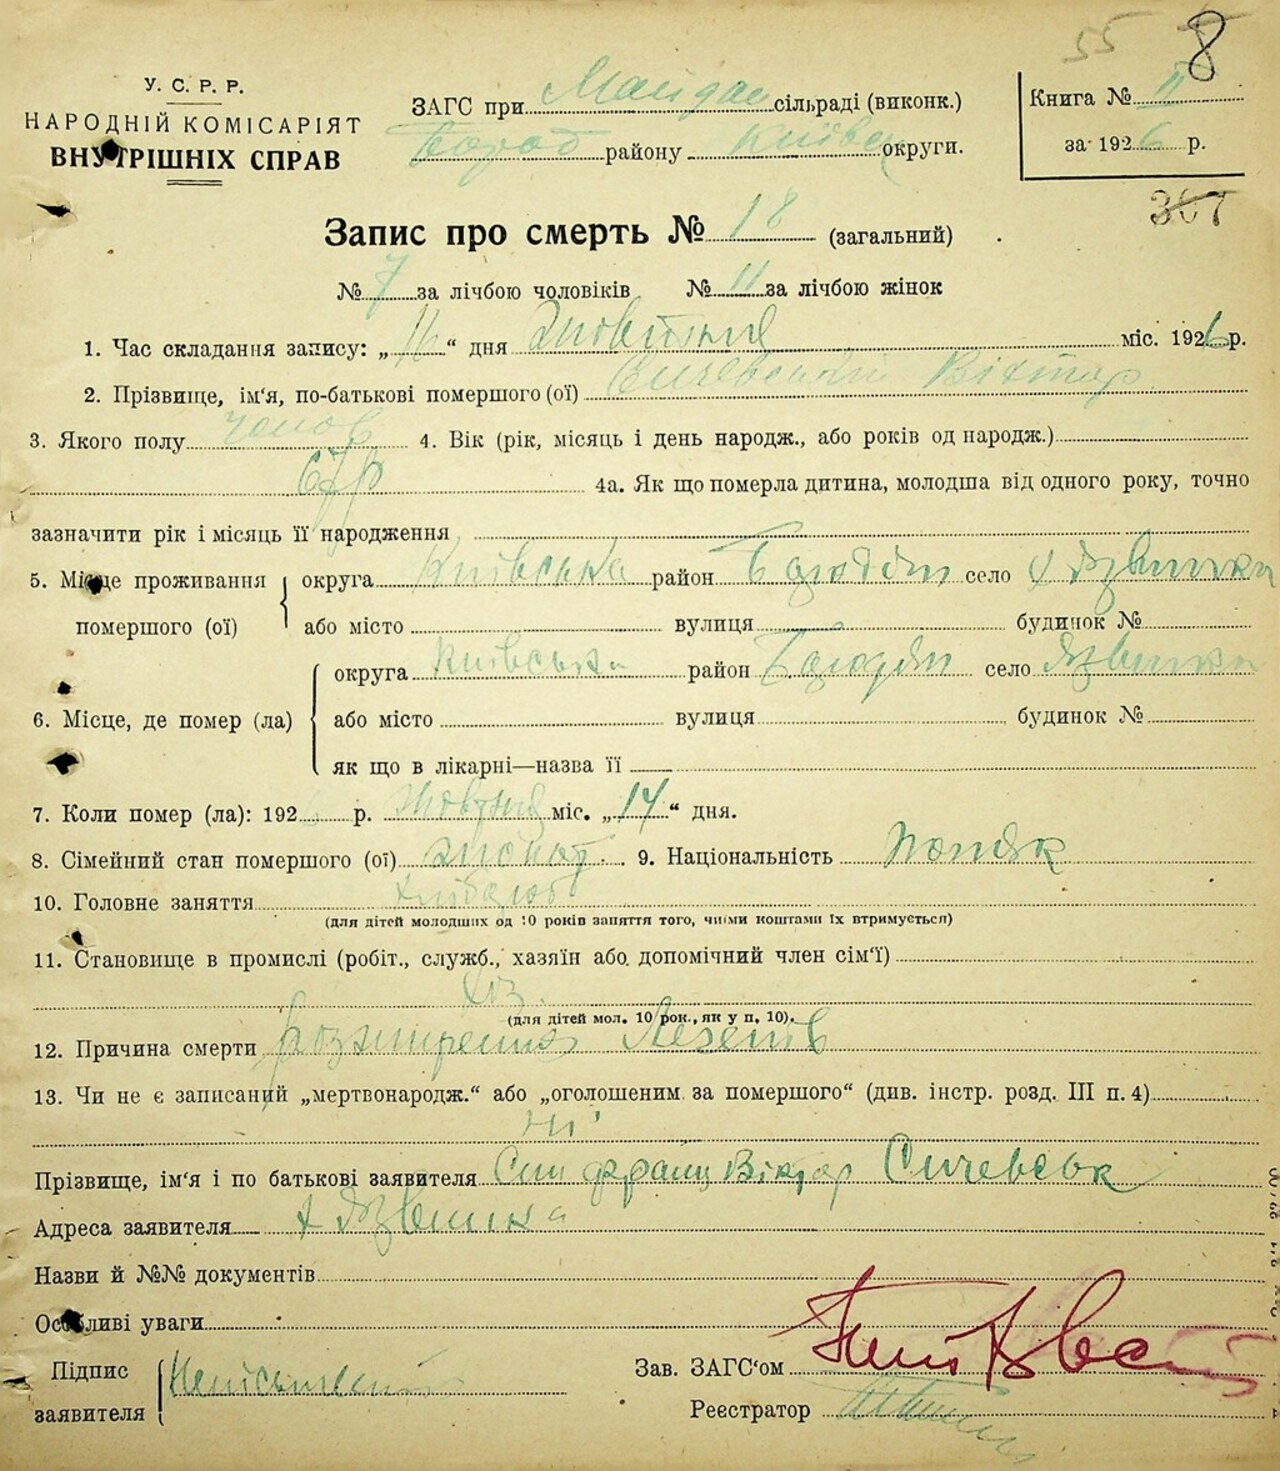 55 8
У. С. Р. Р.
НАРОДНІЙ КОМІСАРІЯТ
ВНУТРІШНІХ СПРАВ
ЗАГС при Майдан сільраді (виконк.)
Бород району Київськ округи.
Книга № II
за 1926 р.
307
Запис про смерть № 18 (загальний)
№ 7 за лічбою чоловіків № 11 за лічбою жінок
1. Час складання запису: „16“ дня Жовтня міс. 1926 р.
2. Прізвище, ім'я, по-батькові помершого (ої) Сичевский Віктор
3. Якого полу Чолов 4. Вік (рік, місяць і день народж., або років од народж.)
67 р 4а. Як що померла дитина, молодша від одного року, точно
зазначити рік і місяць її народження
5. Місце проживання помершого (ої)
округа Київська район Бородян село х Язвинка
або місто вулиця будинок №
6. Місце, де помер (ла)
округа Київська район Бородян село Язвинка
або місто вулиця будинок №
як що в лікарні—назва її
7. Коли помер (ла): 1926 р. Жовтня міс. „14“ дня.
8. Сімейний стан помершого (ої) жонат 9. Національність Поляк
10. Головне заняття Хлібороб
(для дітей молодших од 10 років заняття того, чиїми коштами їх втримується)
11. Становище в промислі (робіт., служб., хазяїн або допомічний член сім'ї)
Хоз.
(для дітей мол. 10 рок., як у п. 10).
12. Причина смерти Розширення Легенів
13. Чи не є записаний „мертвонародж.“ або „оголошеним за помершого“ (див. інстр. розд. III п. 4)
Ні
Прізвище, ім'я і по батькові заявителя Син Франц Віктор Сичевськ
Адреса заявителя х Язвинка
Назви й №№ документів
Особливі уваги
Підпис заявителя Неписьменний
Зав. ЗАГС'ом
Реєстратор